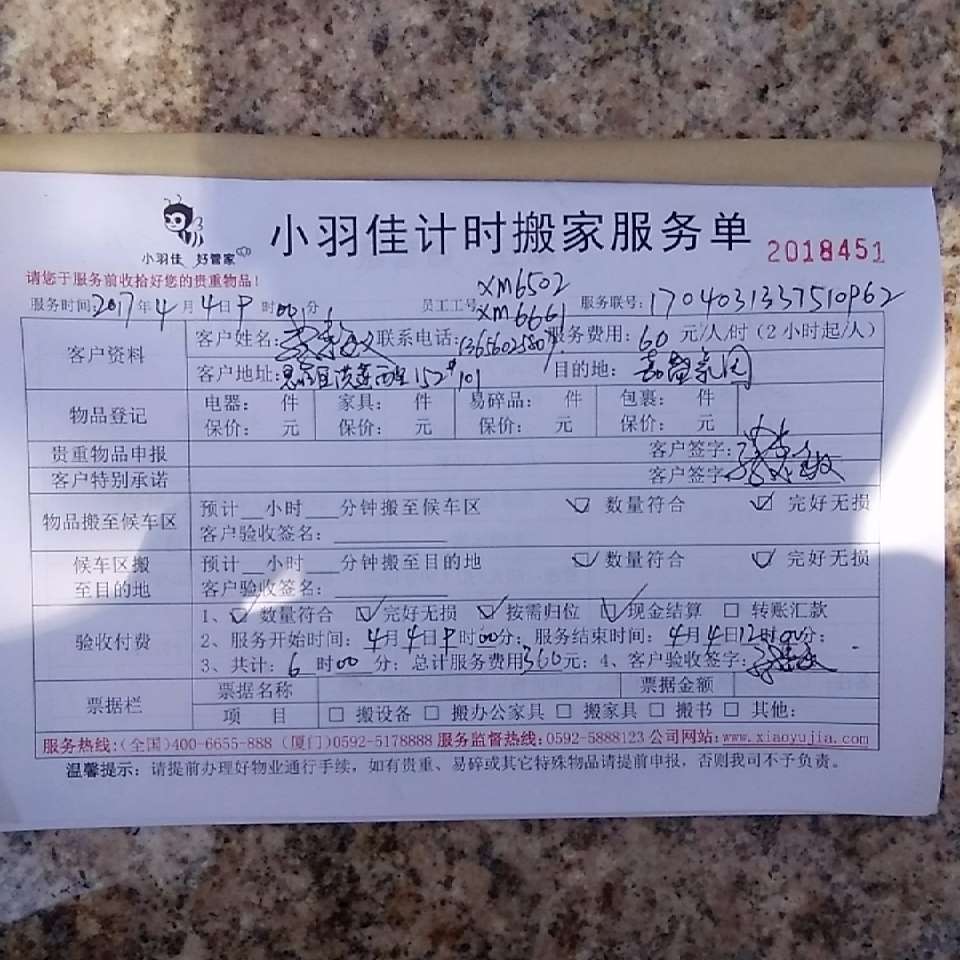 小羽佳 好管家
小羽佳计时搬家服务单 2018451
请您于服务前收拾好您的贵重物品!
服务时间:2017年4月4日9时00分 员工工号:XM6502 XM6661 服务联号:1704031337510962
客户资料
客户姓名: 联系电话:13656025807 服务费用:60元/人/时(2小时起/人)
客户地址: 152#101 目的地:
物品登记
电器: 件 家具: 件 易碎品: 件 包裹: 件
保价: 元 保价: 元 保价: 元 保价: 元
贵重物品申报 客户签字:
客户特别承诺 客户签字:
物品搬至候车区
预计__小时___分钟搬至候车区 数量符合 完好无损
客户验收签名:
候车区搬至目的地
预计__小时___分钟搬至目的地 数量符合 完好无损
客户验收签名:
验收付费
1、数量符合 完好无损 按需归位 现金结算 转账汇款
2、服务开始时间:4月4日9时00分;服务结束时间:4月4日12时00分;
3、共计:6时00分;总计服务费用360元;4、客户验收签字:
票据栏
票据名称 票据金额
项 目 搬设备 搬办公家具 搬家具 搬书 其他:
服务热线:(全国)400-6655-888 (厦门)0592-5178888 服务监督热线:0592-5888123 公司网站:www.xiaoyujia.com
温馨提示:请提前办理好物业通行手续,如有贵重、易碎或其它特殊物品请提前申报,否则我司不予负责。